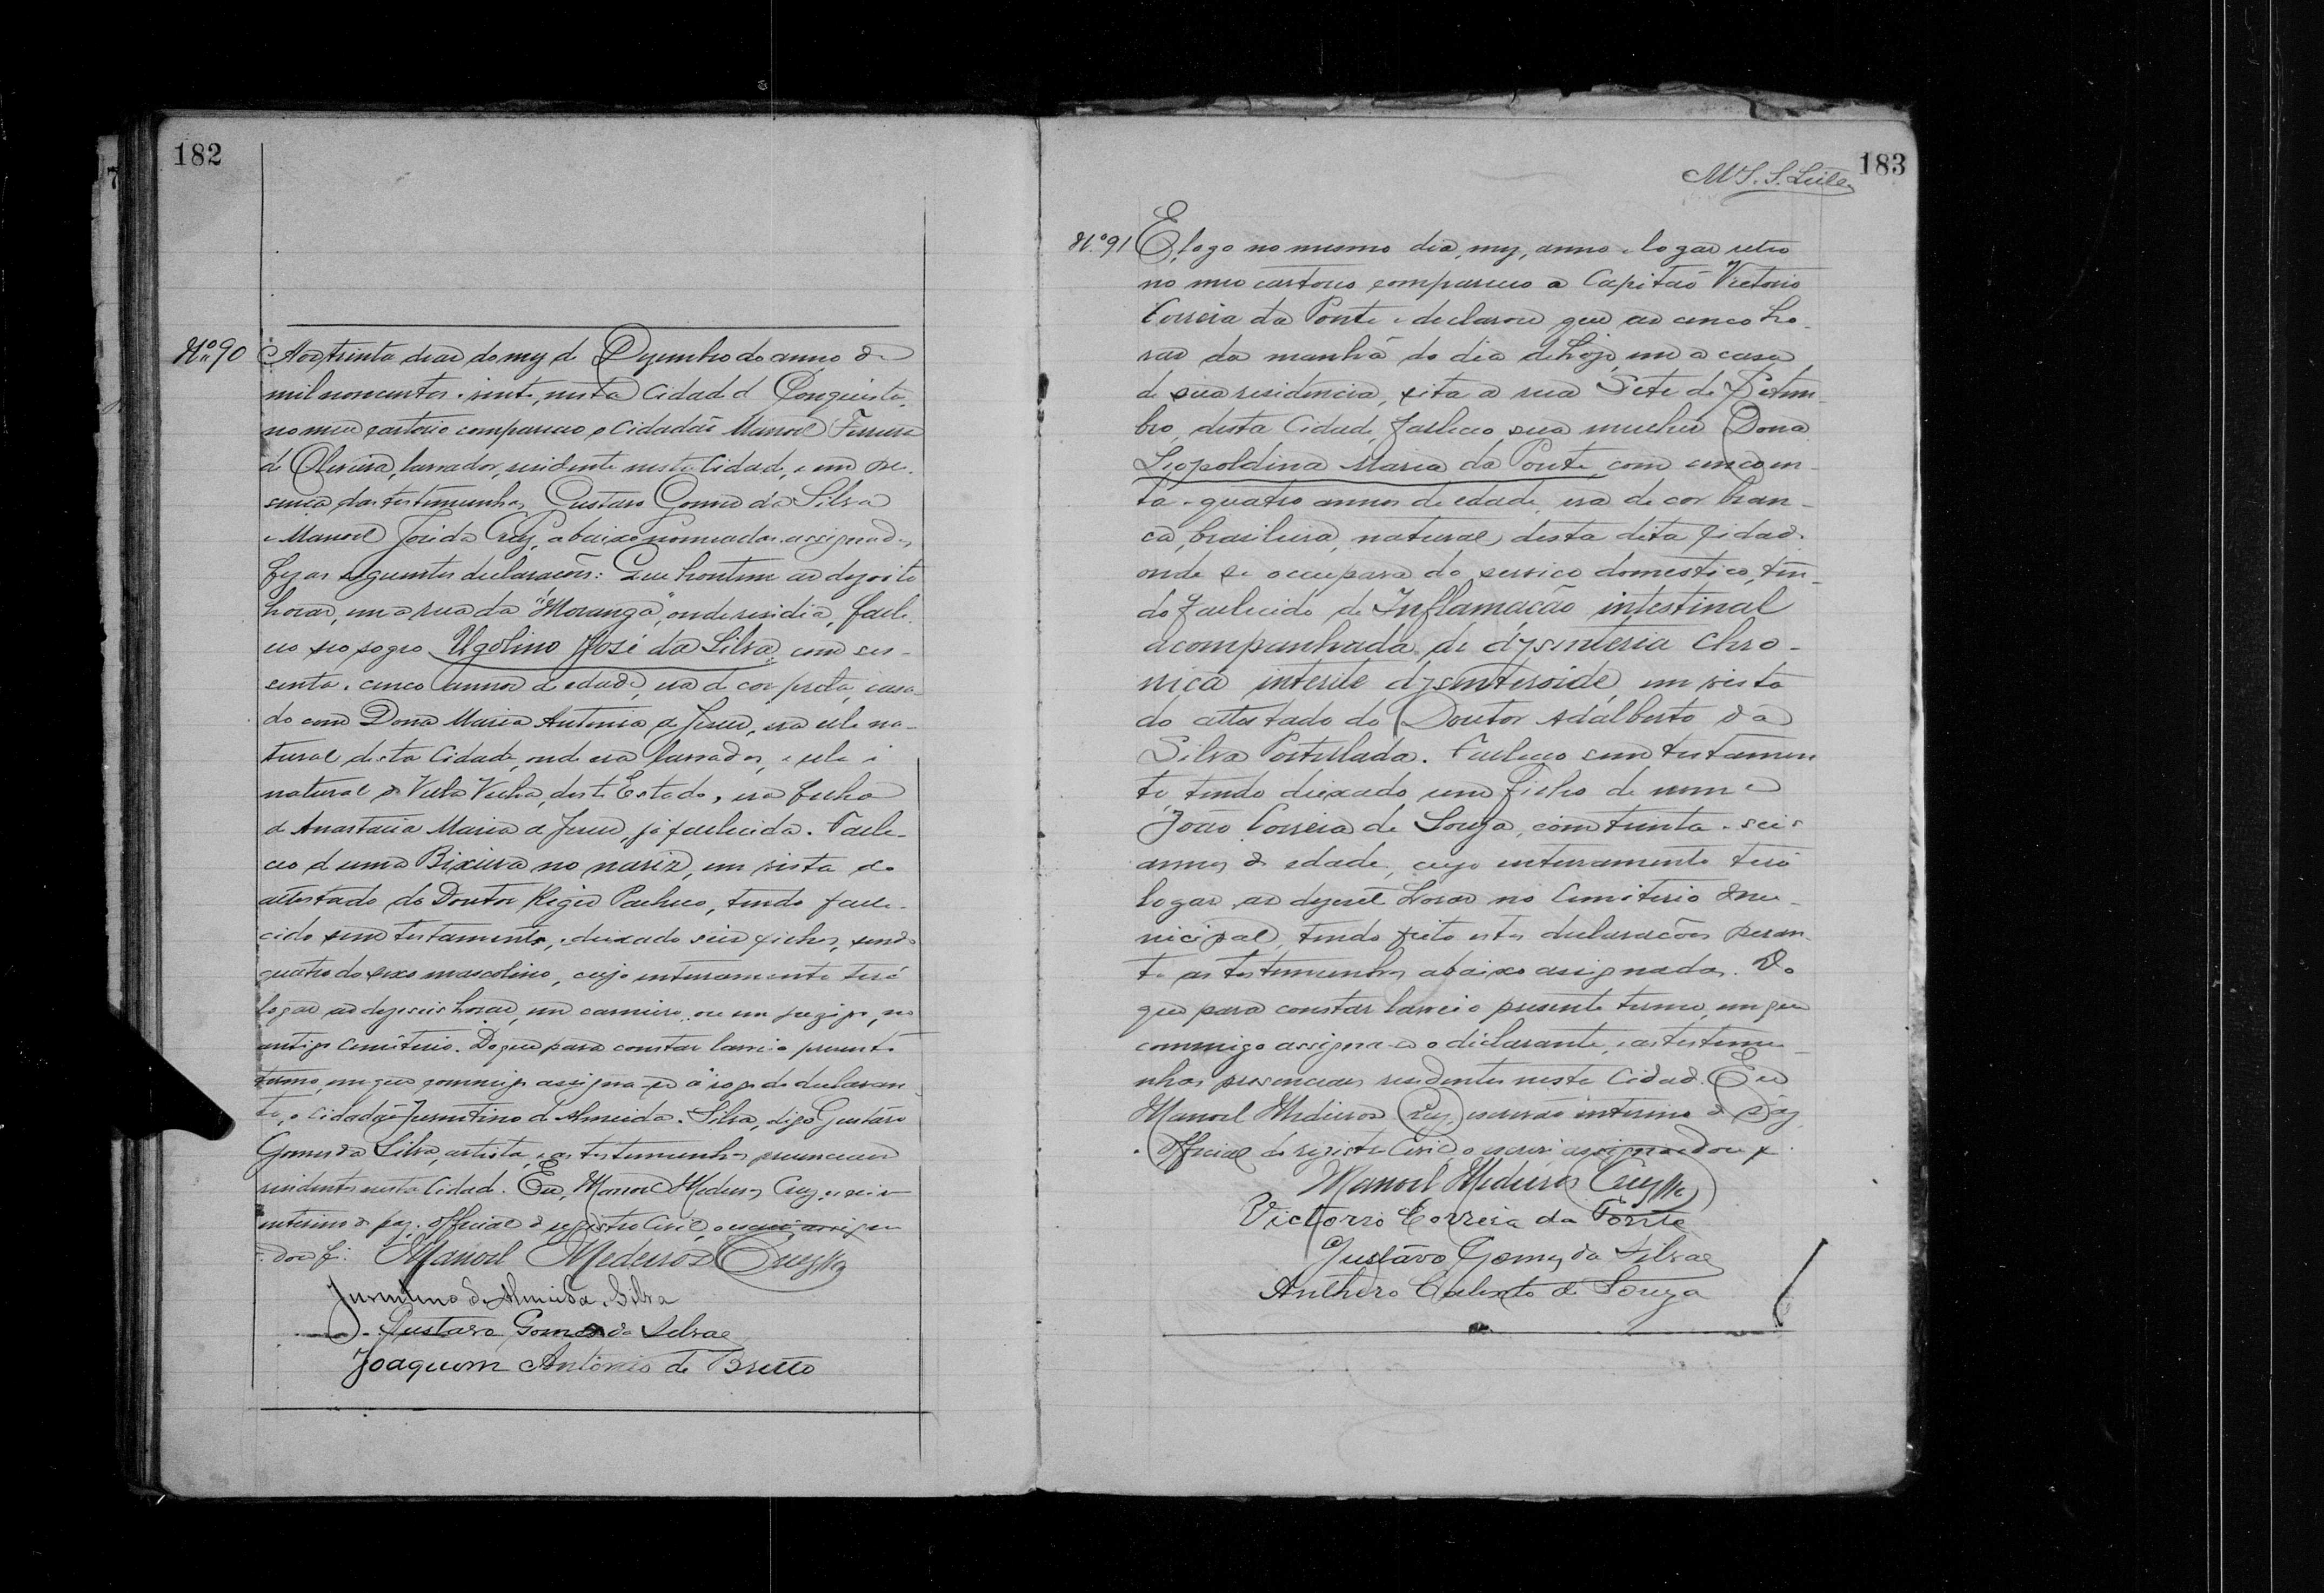 182
Nº 90 Aos trinta dias do mez de Dezembro do anno de
mil novecentos e vinte, nesta Cidade de Conquista,
no meu cartorio compareceo o Cidadão Manoel Ferreira
de Oliveira, lavrador, residente nesta Cidade, e em pre-
sença das testemunhas Gustavo Gomes da Silva
e Manoel José da Cruz, abaixo nomeadas e assignadas,
fez as seguintes declarações: Que hontem as dezoito
horas, em a rua da "Moranga", onde residia, falle-
ceo seo sogro Ugolino José da Silva, com ses-
senta e cinco annos de edade, era de cor preta, casa-
do com Dona Maria Antonia de Jesus, era elle na-
tural desta Cidade, onde era lavrador, e ella é
natural de Villa Velha, deste Estado, era filho
de Anastacia Maria de Jesus, já fallecida. Falle-
ceo de uma Bixeira no nariz, em vista do
attestado do Doutor Regis Pacheco, tendo falle-
cido sem testamento, e deixado seis filhos, sendo
quatro do sexo mascolino, cujo enterramento terá
logar as dezeseis horas, em carneiro, ou em jazigo, no
antigo Cemiterio. Do que para constar lavrei o presente
termo, em que commigo assigna-se a rogo do declaran-
te, o cidadão Juventino de Almeida e Silva, digo Gustavo
Gomes da Silva, artista, e as testemunhas presenciaes
residentes nesta Cidade. Eu, Manoel Medeiros Cruz, escrivão
interino de paz e official de registro Civil, o escrevi, assigno
e dou fé. Manoel Medeiros Cruz
Juventino de Almeida e Silva
Gustavo Gomes da Silva
Joaquim Antonio de Britto
183
Nº 91 E, logo no mesmo dia, mez, anno e logar retro
no meu cartorio compareceo o Capitão Victorio
Correia da Ponte e declarou que as cinco ho-
ras da manhã do dia de hoje, em a casa
de sua residencia, sita a rua Sete de Setem-
bro, desta Cidade, falleceo sua mulher Dona
Leopoldina Maria da Ponte, com cincoen-
ta e quatro annos de edade, era de cor bran-
ca, brasileira, natural desta dita Cidade
onde se occupava do serviço domestico, ten-
do fallecido de Inflamação intestinal
acompanhada de dysenteria chro-
nica interite dysenteroide, em vista
do attestado do Doutor Adalberto da
Silva Portellada. Falleceo sem testamen
to, tendo deixado um filho de nome
João Correia de Souza, com trinta e seis
annos de edade, cujo enterramento terá
logar as dezesete horas no Cemiterio Mu-
nicipal, tendo feito estas declarações peran-
te as testemunhas abaixo assignadas. Do
que para constar lavrei o presente termo, em que
commigo assigna-se o declarante, e as testemu-
nhas presenciaes residentes nesta Cidade. Eu
Manoel Medeiros Cruz, escrivão interino de Paz
e Official do registro Civil, o escrevi assigno e dou fé.
Manoel Medeiros Cruz
Victorio Correia da Ponte
Gustavo Gomes da Silva
Anthero Calixto de Souza